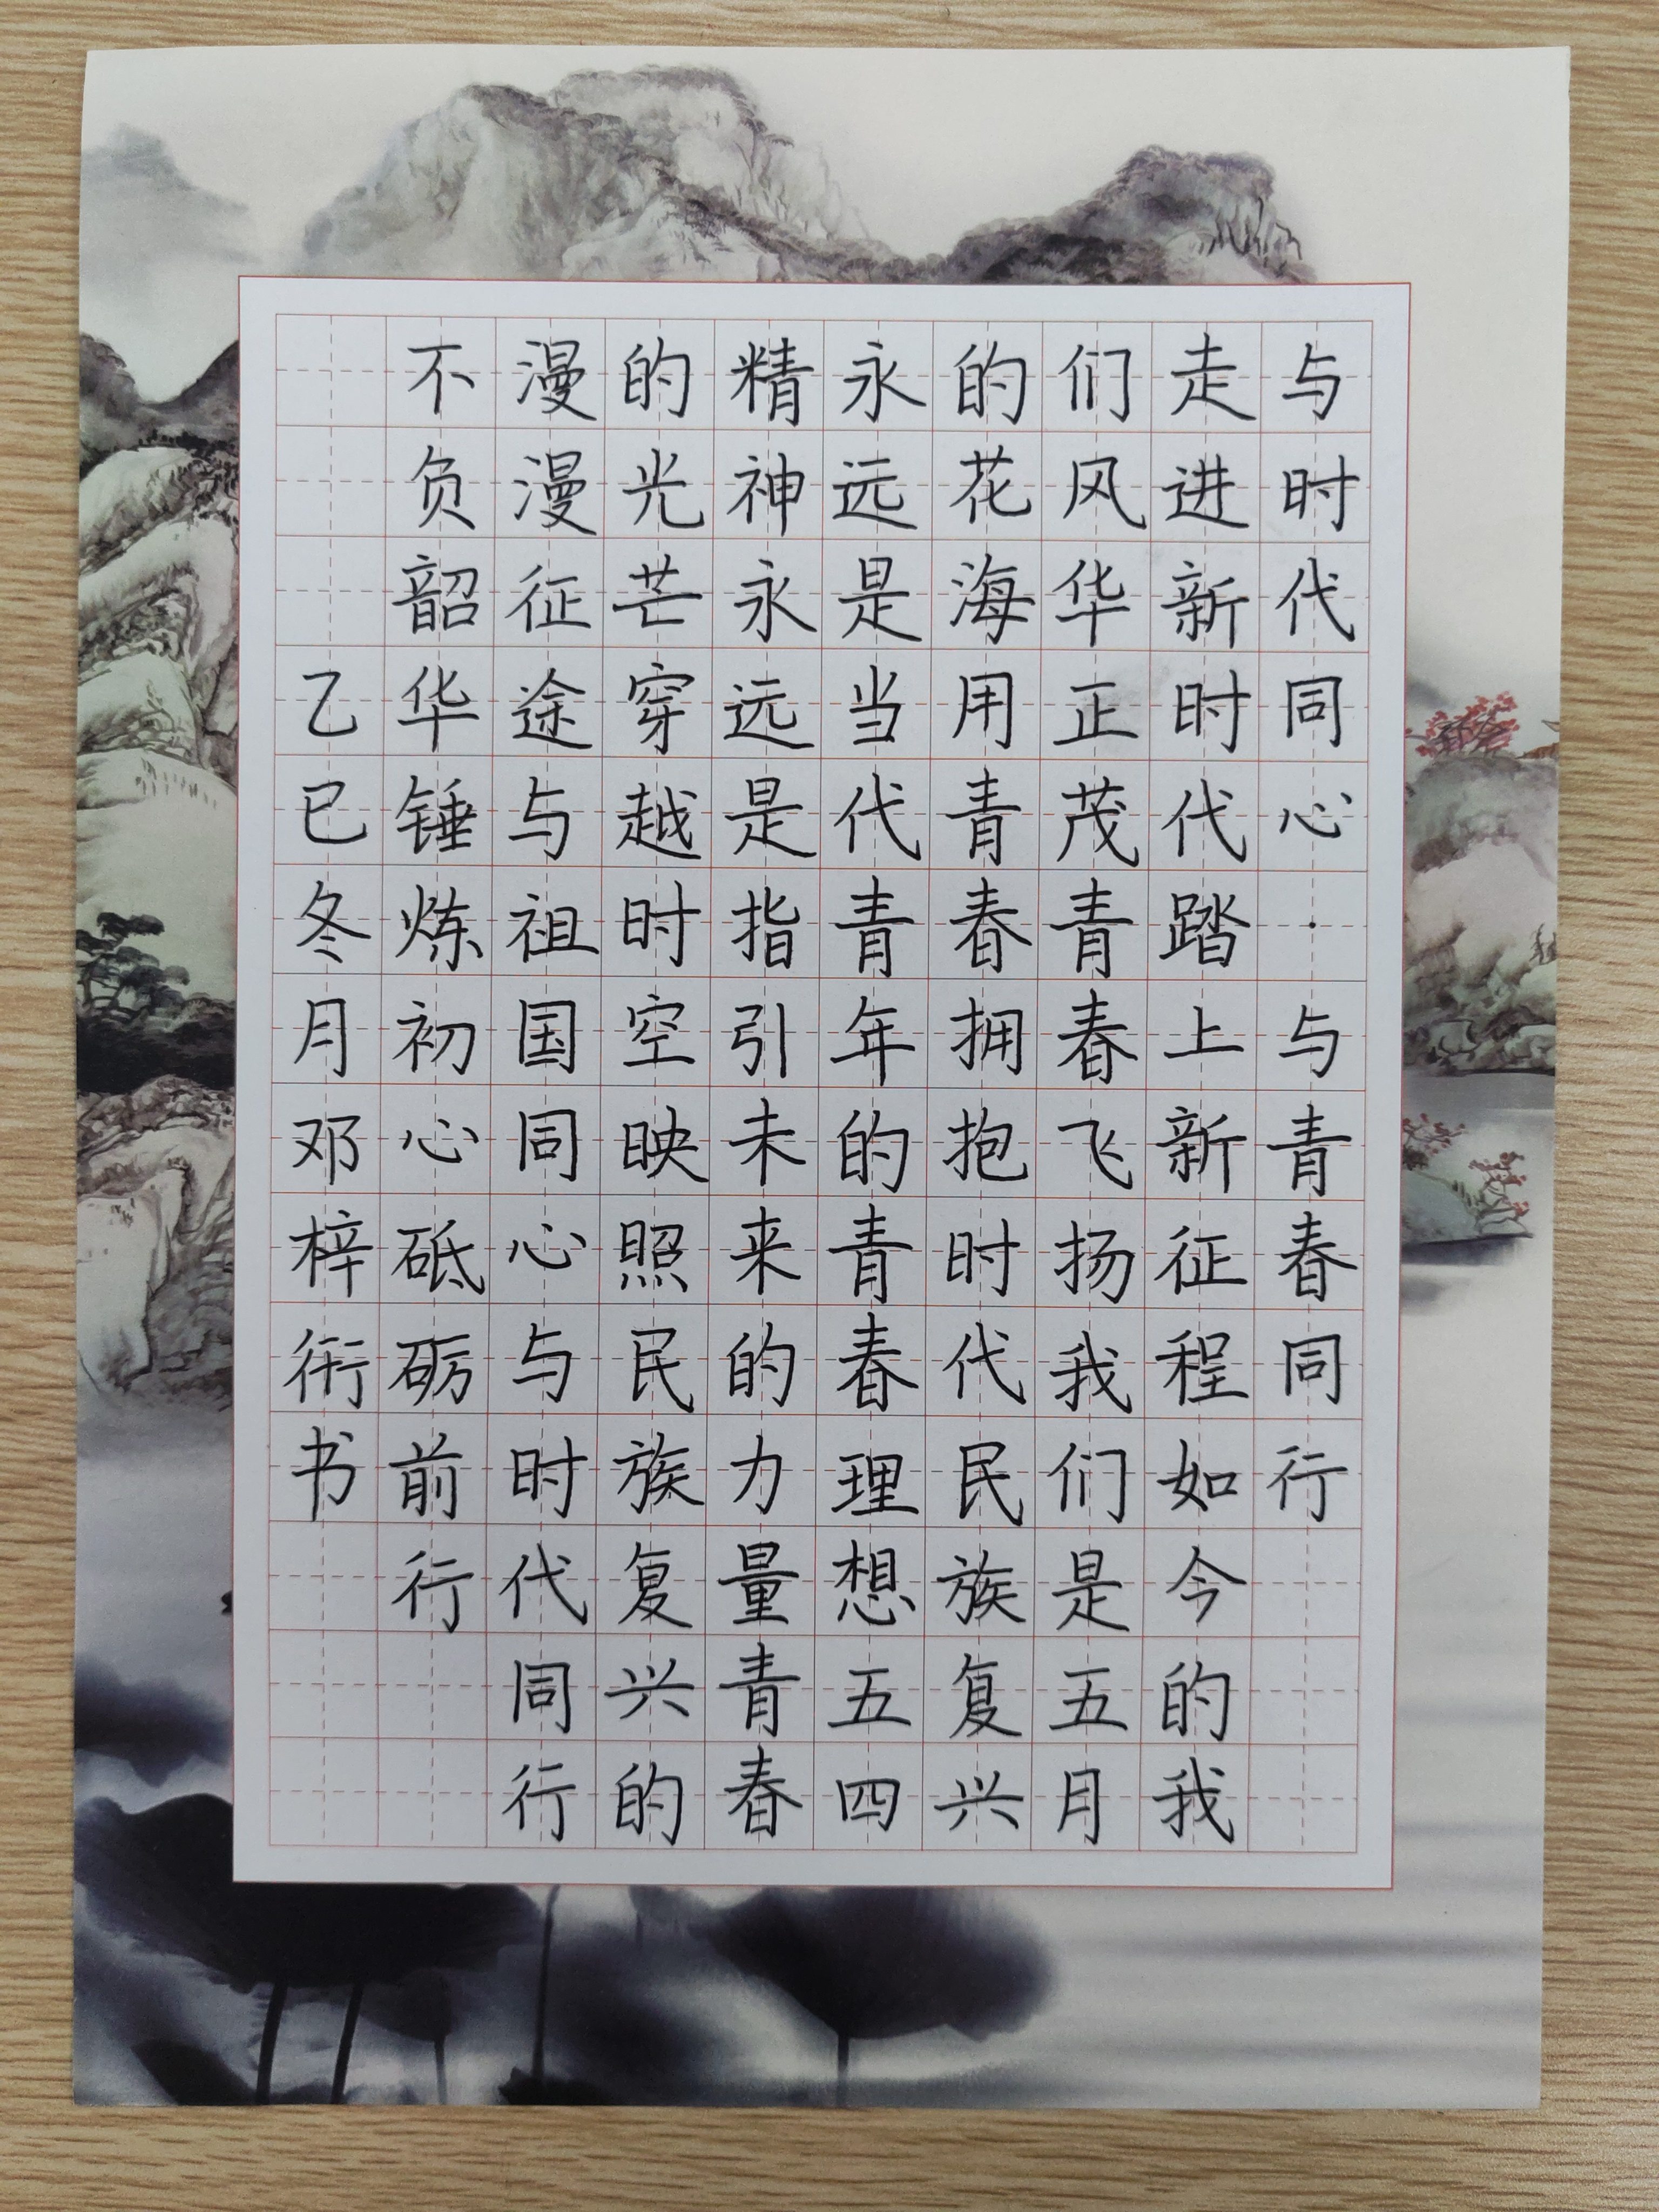 与时代同心·与青春同行
走进新时代踏上新征程如今的我
们风华正茂青春飞扬我们是五月
的花海用青春拥抱时代民族复兴
永远是当代青年的青春理想五四
精神永远是指引未来的力量青春
的光芒穿越时空映照民族复兴的
漫漫征途与祖国同心与时代同行
不负韶华锤炼初心砥砺前行
乙巳冬月邓梓衎书